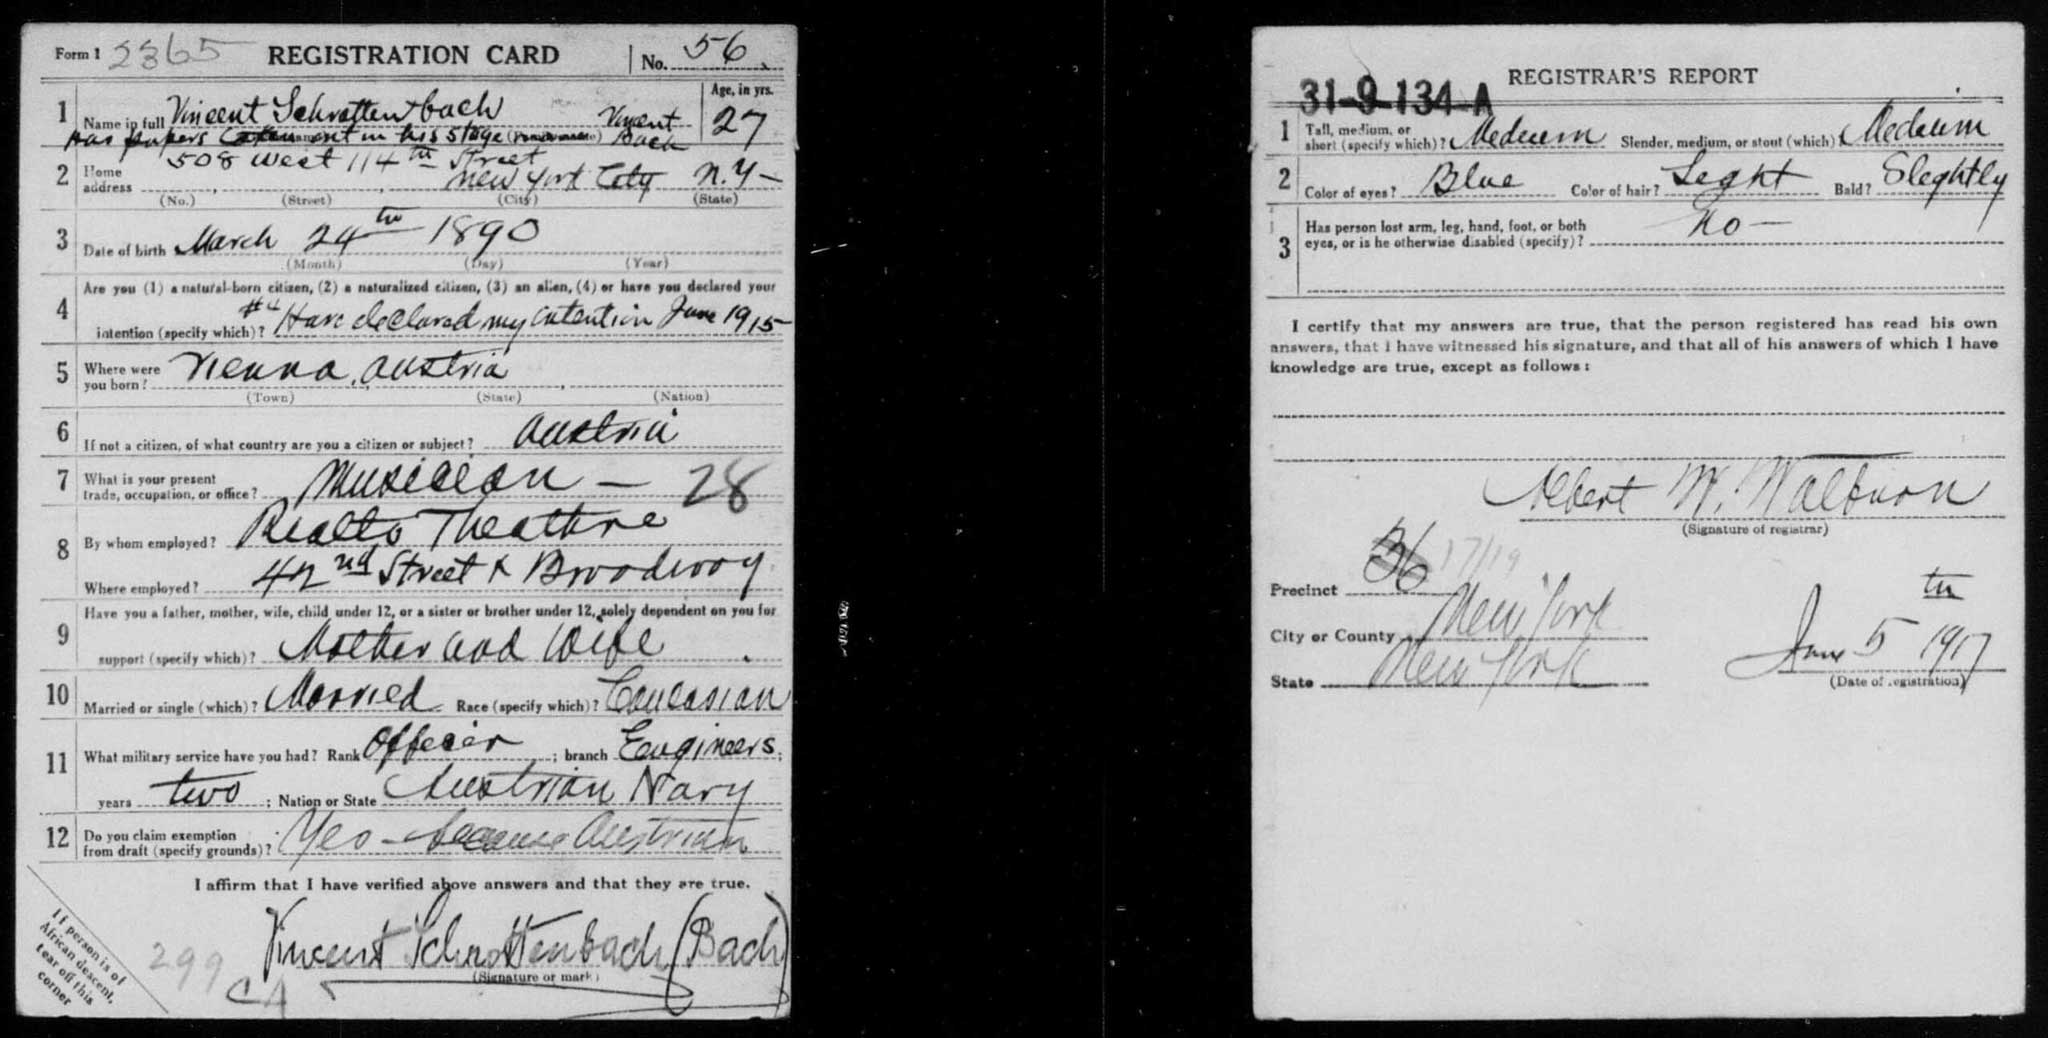 Form 1 2365 REGISTRATION CARD No. 56
1 Name in full Vincent Schrottenbach Age, in yrs. 27
Has papers taken out in his stage Vincent Bach
508 West 114th Street
2 Home address New York City N.Y—
(No.) (Street) (City) (State)
3 Date of birth March 24th 1890
(Month) (Day) (Year)
4 Are you (1) a natural-born citizen, (2) a naturalized citizen, (3) an alien, (4) or have you declared your
intention (specify which)? #4 Have declared my intention June 1915—
5 Where were you born? Vienna, Austria
(Town) (State) (Nation)
6 If not a citizen, of what country are you a citizen or subject? Austria
7 What is your present trade, occupation, or office? Musician — 28
8 By whom employed? Realto Theathre
Where employed? 42nd Street & Broadway
9 Have you a father, mother, wife, child under 12, or a sister or brother under 12, solely dependent on you for
support (specify which)? Mother and Wife
10 Married or single (which)? Married Race (specify which)? Caucasian
11 What military service have you had? Rank Officer ; branch Engineers ;
years two ; Nation or State Austrian Navy
12 Do you claim exemption from draft (specify grounds)? Yes — because Austrian
I affirm that I have verified above answers and that they are true.
Vincent Schrottenbach (Bach)
(Signature or mark)
If person is of
African descent,
tear off this
corner
299
CA
REGISTRAR'S REPORT
31-9-134-A
1 Tall, medium, or short (specify which)? Medium Slender, medium, or stout (which)? Medium
2 Color of eyes? Blue Color of hair? Leght Bald? Sleghtly
3 Has person lost arm, leg, hand, foot, or both
eyes, or is he otherwise disabled (specify)? No —
I certify that my answers are true, that the person registered has read his own
answers, that I have witnessed his signature, and that all of his answers of which I have
knowledge are true, except as follows:
Albert W. Walburn
(Signature of registrar)
Precinct 36 17/19
City or County New York
State New York
June 5th 1917
(Date of registration)